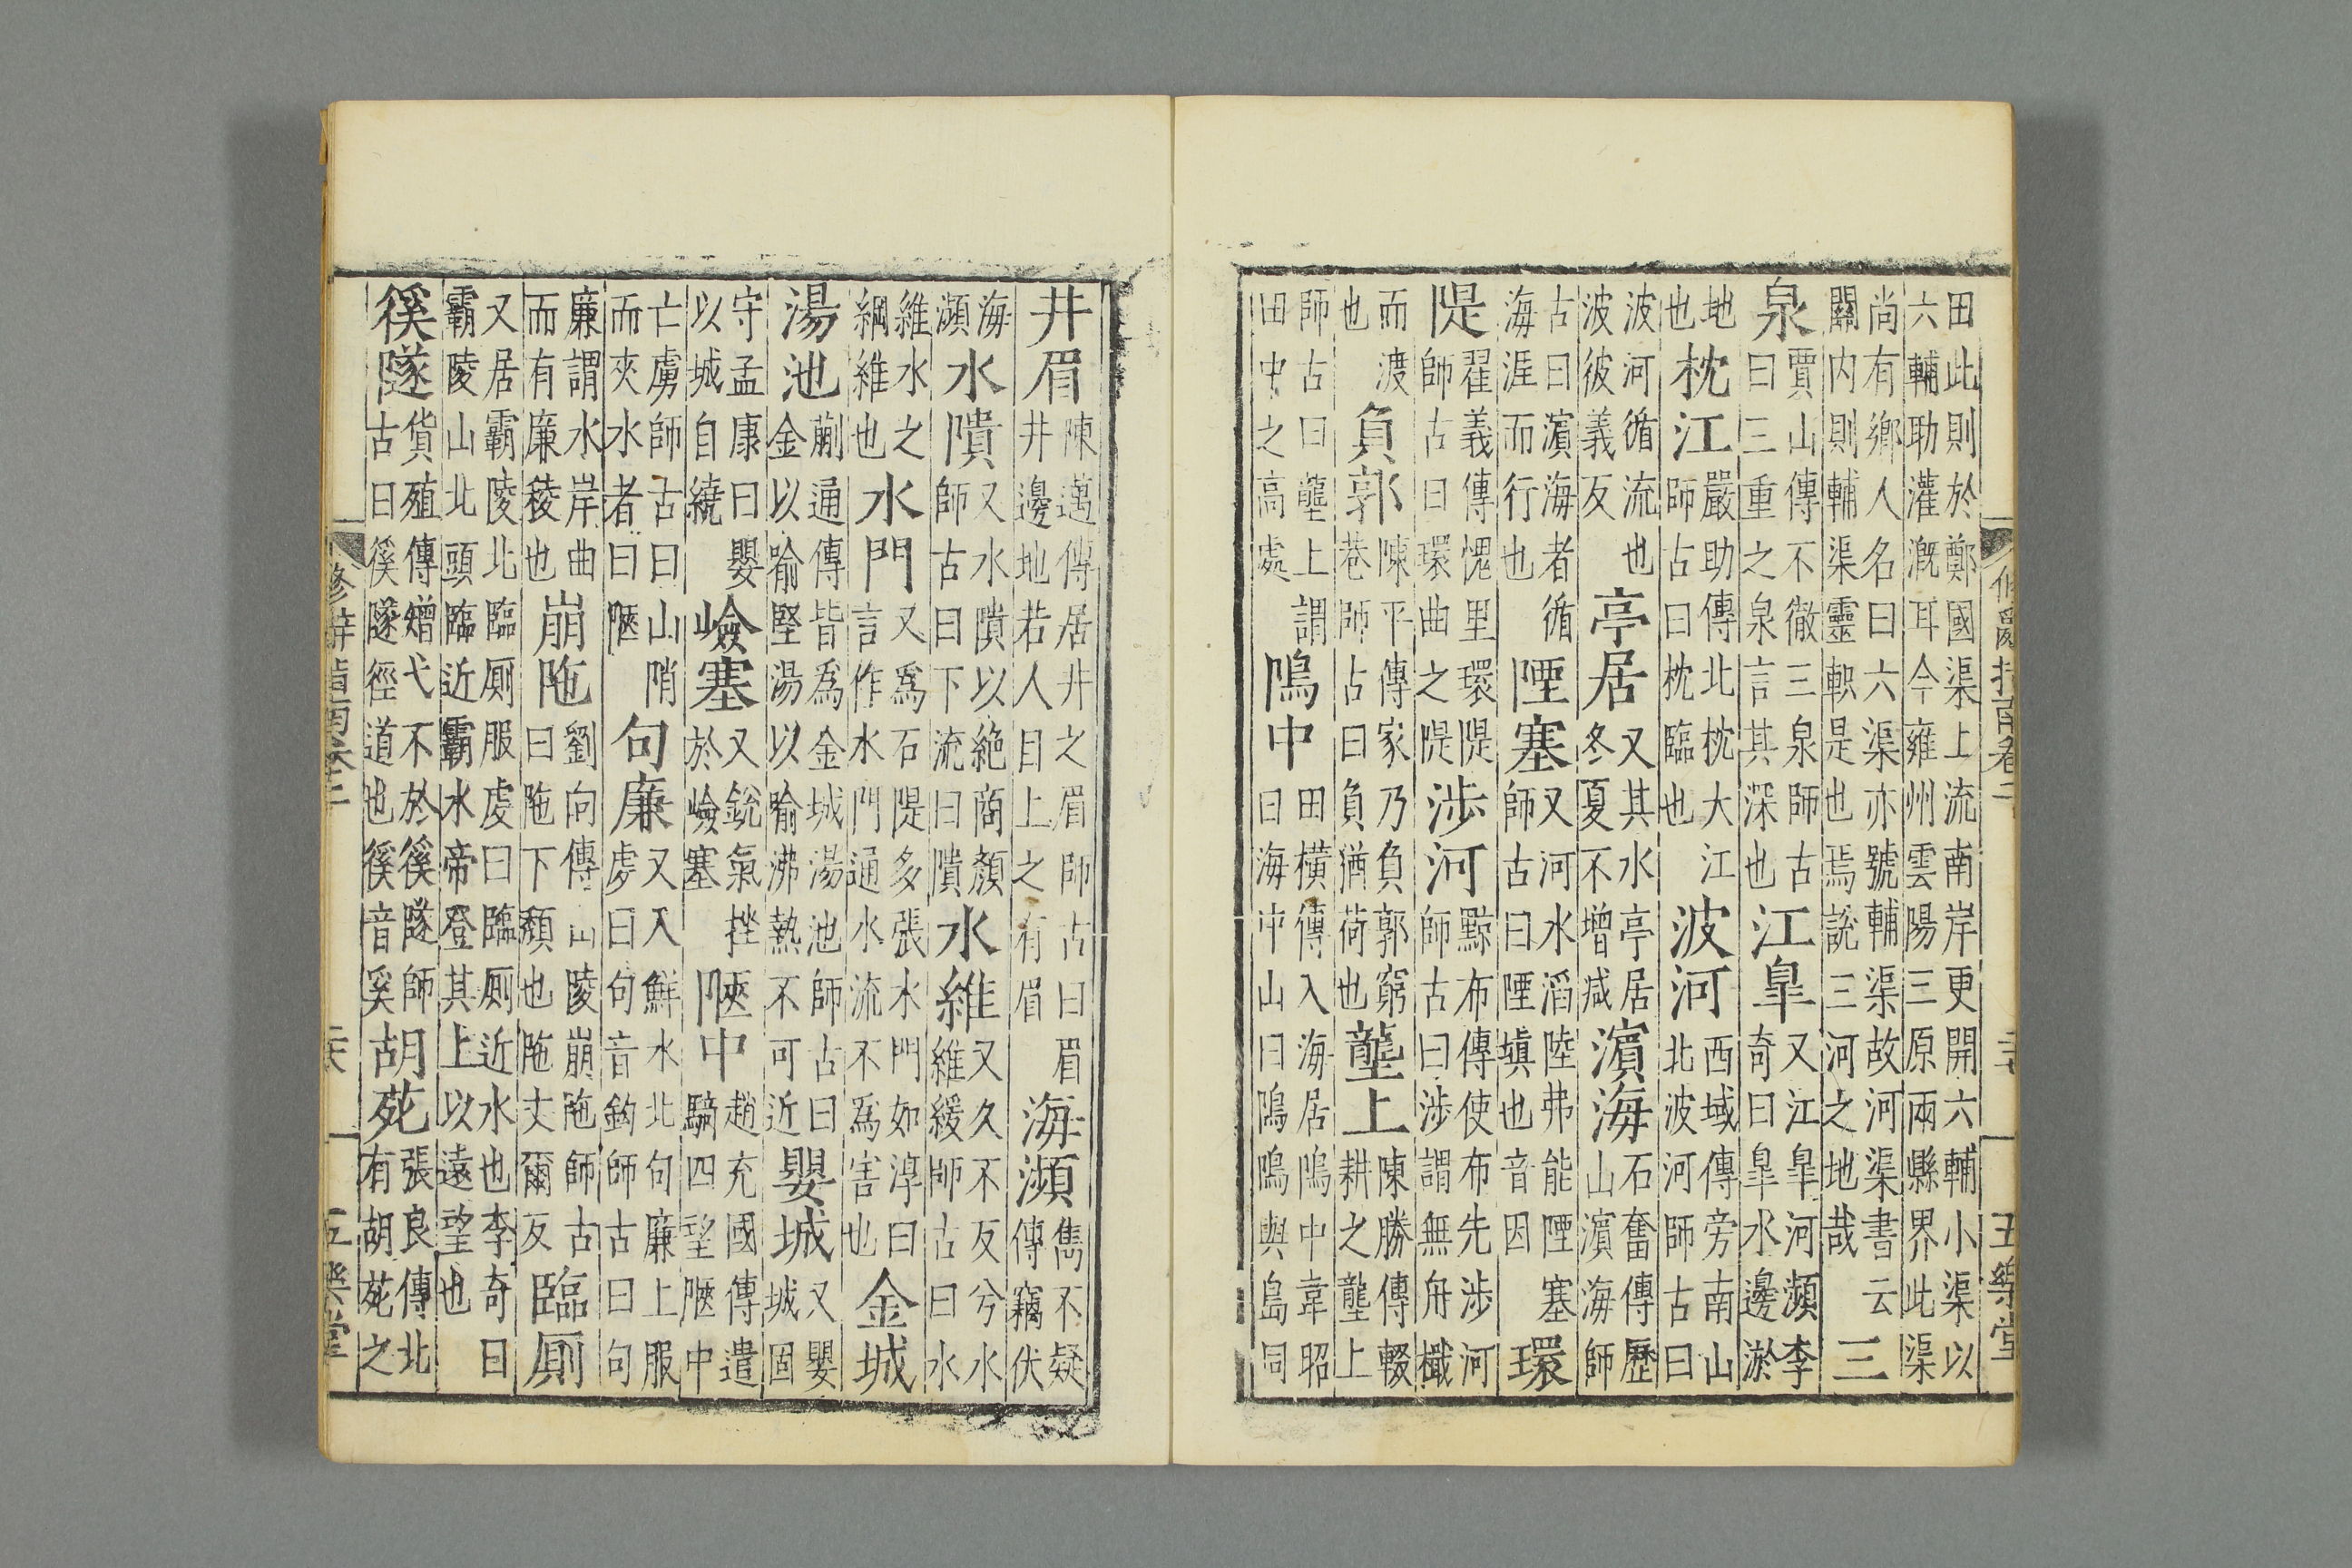 田此則於鄭國渠上流南岸更開六輔小渠以
六輔助灌溉耳今雍州雲陽三原兩縣界此渠
尚有鄉人名曰六渠亦號輔渠故河渠書云
關内則輔渠靈軹是也焉説三河之地哉三
泉賈山傳不徹三泉師古曰三重之泉言其深也江臯又江臯河瀕李奇曰臯水邊淤
地也枕江嚴助傳北枕大江師古曰枕臨也波河西域傳旁南山北波河師古曰
波河循流也波彼義反亭居又其水亭居冬夏不增减濱海石奮傳歷山濱海師
古曰濱海者循海涯而行也陻塞又河水滔陸弗能陻塞師古曰陻塡也音因環
隄翟義傳愧里環隄師古曰環曲之隄涉河黥布傳使布先涉河師古曰涉謂無舟檝
而渡也負郭陳平傳家乃負郭窮巷師古曰負猶荷也壟上陳勝傳輟耕之壟上
師古曰壟上謂田中之高處隝中田橫傳入海居隝中韋昭曰海中山曰隝隝與島同
五樂堂
井眉陳遵傳居井之眉師古曰眉井邊地若人目上之有眉海瀕雋不疑傳竊伏
海瀕水隤又水隤以絶商顏師古曰下流曰隤水維又久不反兮水維緩師古曰水
維水之綱維也水門又爲石隄多張水門如淳曰言作水門通水流不爲害也金城
湯池蒯通傳皆爲金城湯池師古曰金以喻堅湯以喻沸熱不可近嬰城又嬰城固
守孟康曰嬰以城自繞嶮塞又銳氣挫於嶮塞陿中趙充國傳遣騎四望陿中
亡虜師古曰山陗而夾水者曰陿句廉又入鮮水北句廉上服虔曰句音鈎師古曰句
廉謂水岸曲而有廉稜也崩陁劉向傳山陵崩陁師古曰陁下頹也陁丈爾反臨厠
又居霸陵北臨厠服虔曰臨厠近水也李奇曰霸陵山北頭臨近霸水帝登其上以遠望也
徯隧貨殖傳矰弋不於徯隧師古曰徯隧徑道也徯音奚胡苑張良傳北有胡苑之
修辭指南卷二
五樂堂